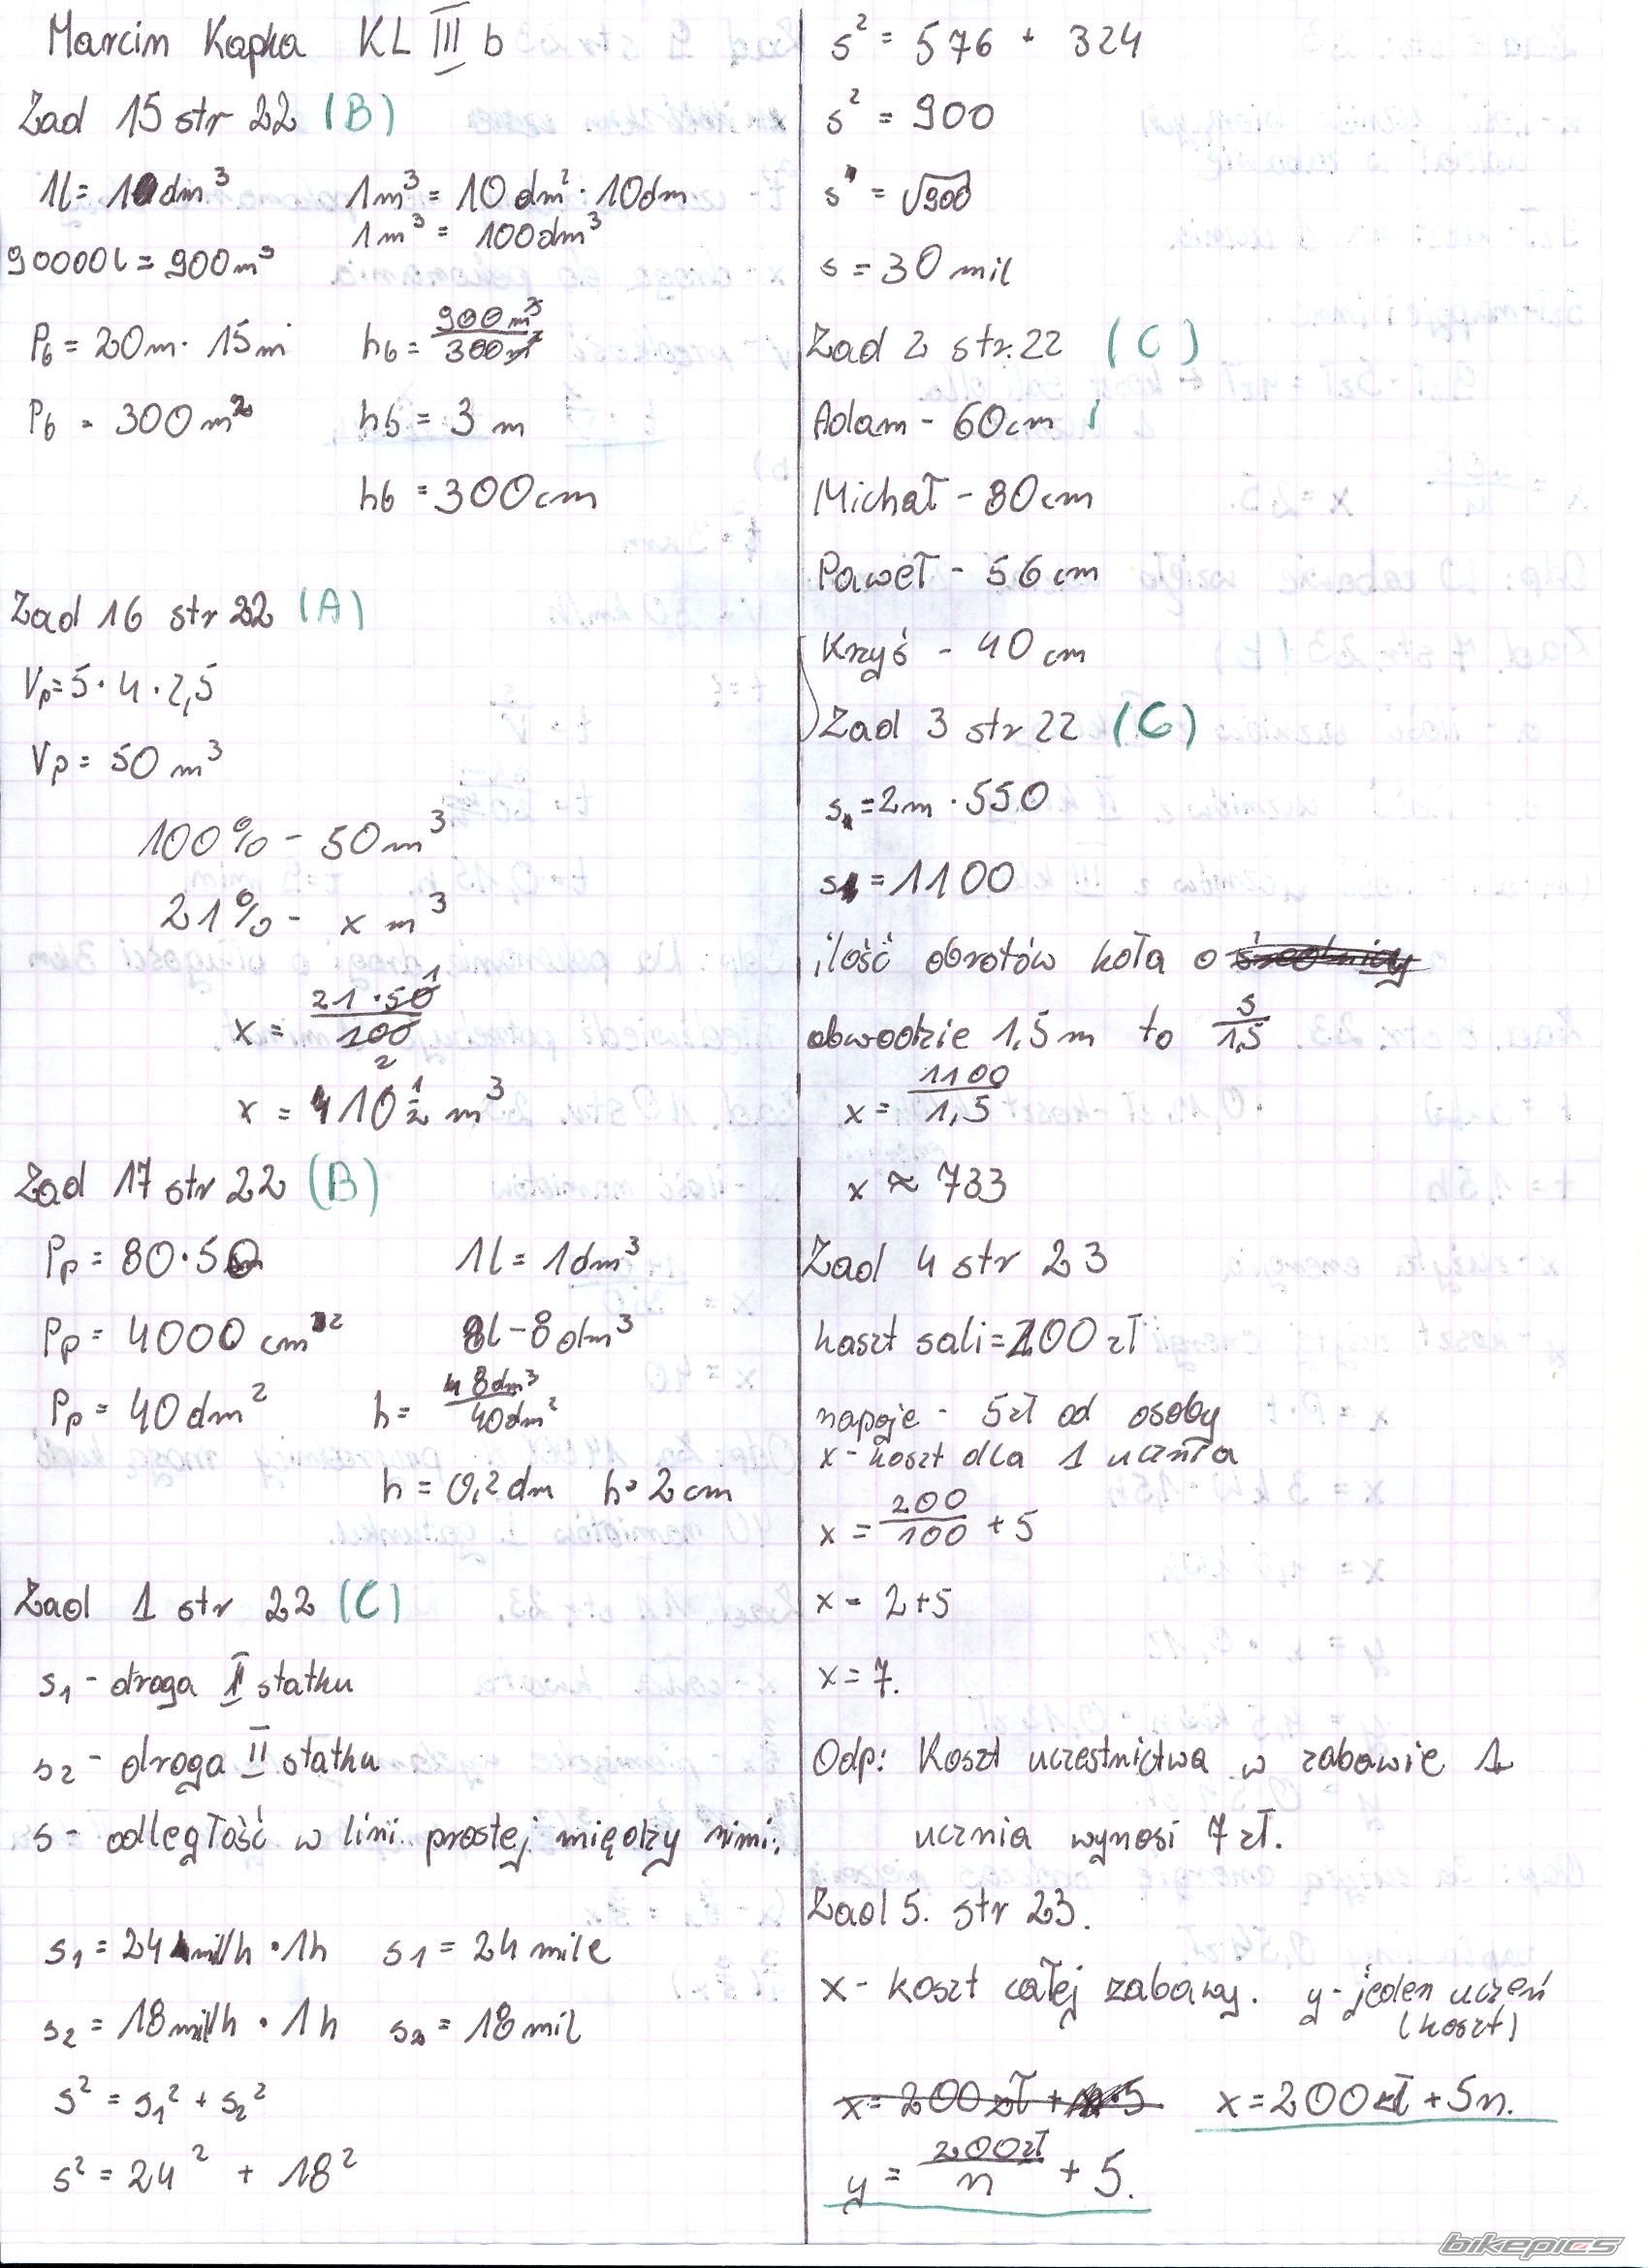 Marcin Kapka KL III b
Zad 15 str 22 (B)
1l = 1dm³ 1m³ = 10dm² · 10dm
1m³ = 100dm³
90000l = 900m³
Pb = 20m · 15m hb = 900m³/300m²
Pb = 300m² hb = 3 m
hb = 300cm
Zad 16 str 22 (A)
Vp = 5 · 4 · 2,5
Vp = 50 m³
100% - 50m³
21% - x m³
x = 21 · 50/100
1
2
x = 10 1/2 m³
Zad 17 str 22 (B)
Pp = 80 · 50 1l = 1dm³
Pp = 4000 cm² 8l - 8dm³
Pp = 40dm² h = 8dm³/40dm²
h = 0,2dm h = 2cm
Zad 1 str 22 (C)
s₁ - droga I statku
s₂ - droga II statku
s - odległość w lini prostej między nimi.
s₁ = 24mil/h · 1h s₁ = 24 mile
s₂ = 18mil/h · 1h s₂ = 18mil
s² = s₁² + s₂²
s² = 24² + 18²
s² = 576 + 324
s² = 900
s = √900
s = 30 mil
Zad 2 str. 22 (C)
Adam - 60cm
Michał - 80cm
Paweł - 56cm
Krzyś - 40cm
Zad 3 str 22 (C)
s = 2m · 550
s = 1100
ilość obrotów koła o średnicy
obwodzie 1,5m to s/1,5
x = 1100/1,5
x ≈ 733
Zad 4 str 23
koszt sali = 200 zł
napoje - 5zł od osoby
x - koszt dla 1 ucznia
x = 200/100 + 5
x = 2+5
x = 7.
Odp: Koszt uczestnictwa w zabawie 1
ucznia wynosi 7 zł.
Zad 5. str 23.
x - koszt całej zabawy. y - jeden uczeń
(koszt)
x = 200 zł + 5 x = 200zł + 5n.
y = 200zł/n + 5.
bikepics